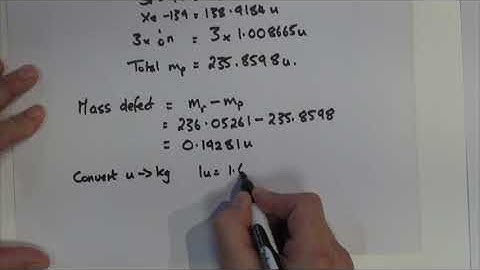 Xe-139 = 138.9184u
3x ¹₀n = 3x1.008665u
Total mₚ = 235.8598u.
Mass defect = mᵣ - mₚ
= 236.05261 - 235.8598
= 0.19281u
Convert u → kg 1u = 1.6